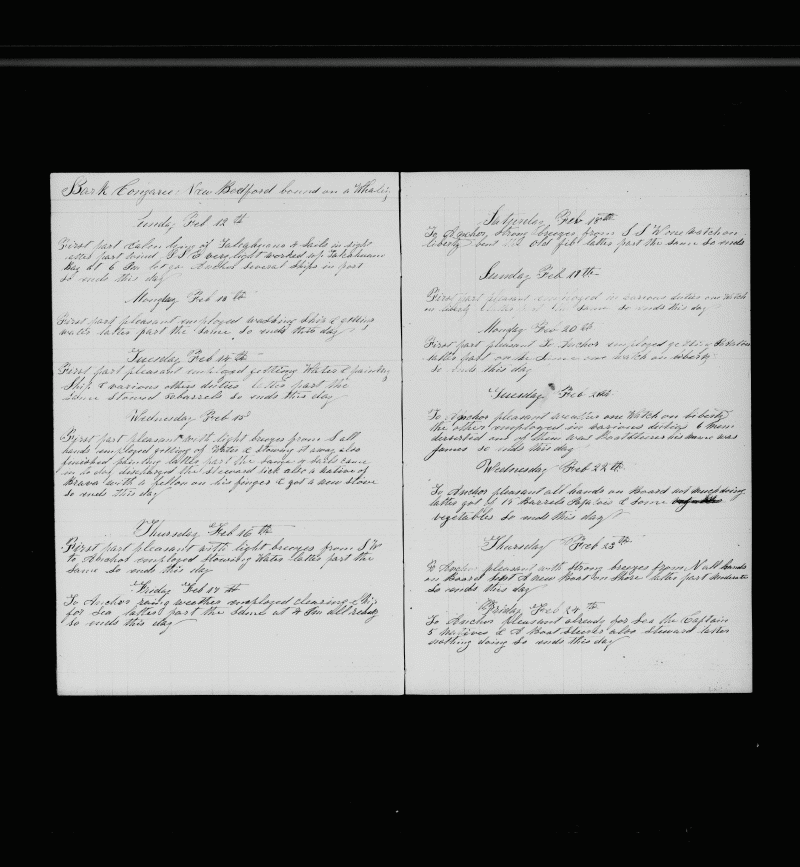 Bark Congaree: New Bedford bound on a Whaling
Sunday Feb 12th
First part calm lying of Talcahuano 4 sails in sight
latter part wind S S E very light worked up Talcahuano
Bay at 6 Pm let go Anchor several ships in port
so ends this day
Monday Feb 13th
First part pleasant employed washing ship &
watter latter part the same so ends this day
Tuesday Feb 14th
First part pleasant employed getting Water & painting
Ship & various other duties latter part the
same stowed barrels so ends this day
Wednesday Feb 15
First part pleasant with light breezes from S all
hands employed getting of Water & stowing it away also
finished painting latter part the same 2 sails came
in to day discharged the Steward sick also a native of
Brava with a fellon on his finger & got a new stove
so ends this day
Thursday Feb 16th
First part pleasant with light breezes from S W
to Anchor employed stowing Water latter part the
same so ends this day
Friday Feb 17th
To Anchor weather employed clearing Ship
for Sea latter part the same at 4 Pm all ready
so ends this day
Saturday Feb 18th
To Anchor, strong breezes from S S W one watch on
liberty bent old jib latter part the same so ends
Sunday Feb 19th
First part pleasant employed in various duties one Watch
on liberty latter part the same so ends this day
Monday Feb 20th
First part pleasant To Anchor employed getting
latter part the same one watch on liberty
so ends this day
Tuesday Feb 21st
To Anchor pleasant weather one Watch on liberty
the other employed in various duties 6 men
deserted one of them was Boatsteerer his name was
James so ends this day
Wednesday Feb 22th
To Anchor pleasant all hands on Board not much doing
latter got 15 Barrels & some
vegetables So ends this day
Thursday Feb 23th
To Anchor pleasant with strong breezes from N all hands
on Board kept A new Boat on Shore latter part moderate
so ends this day
Friday Feb 24th
To Anchor pleasant already for Sea the Captain
5 natives & A Boat Steerer also steward latter
nothing doing so ends this day